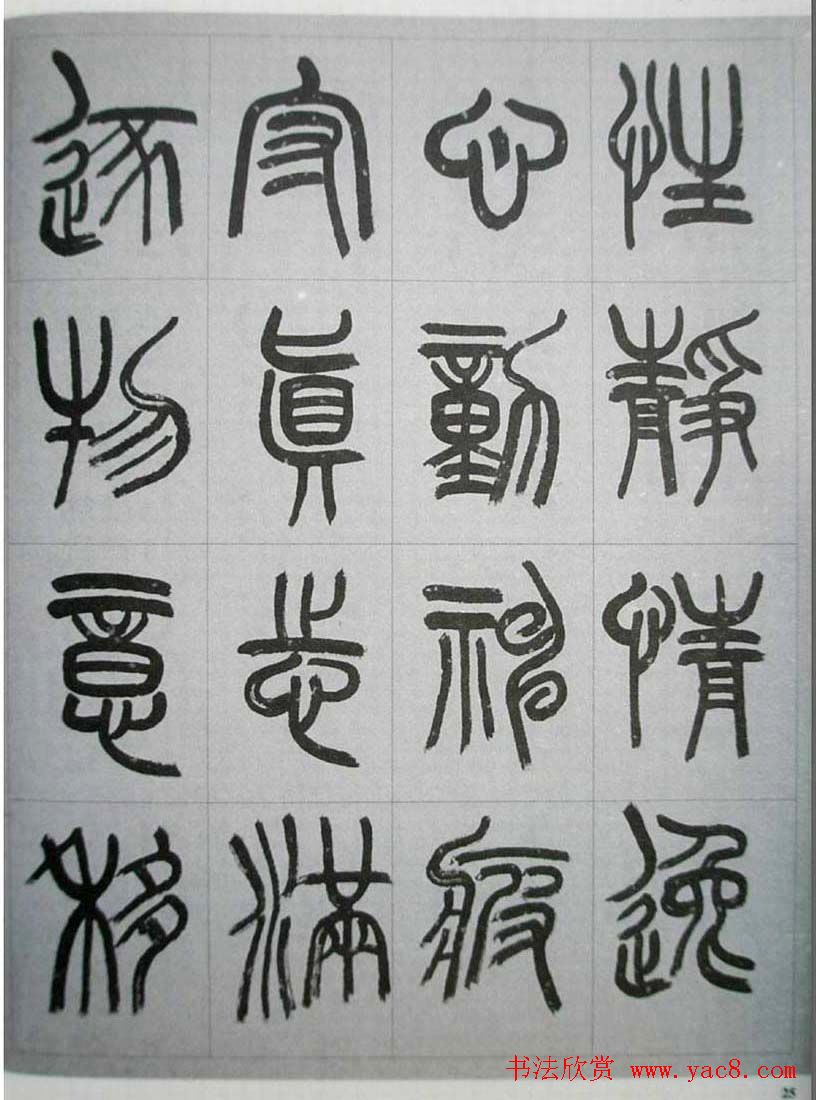 性靜情逸
心動神疲
守真志滿
逐物意移
书法欣赏 www.yac8.com
25